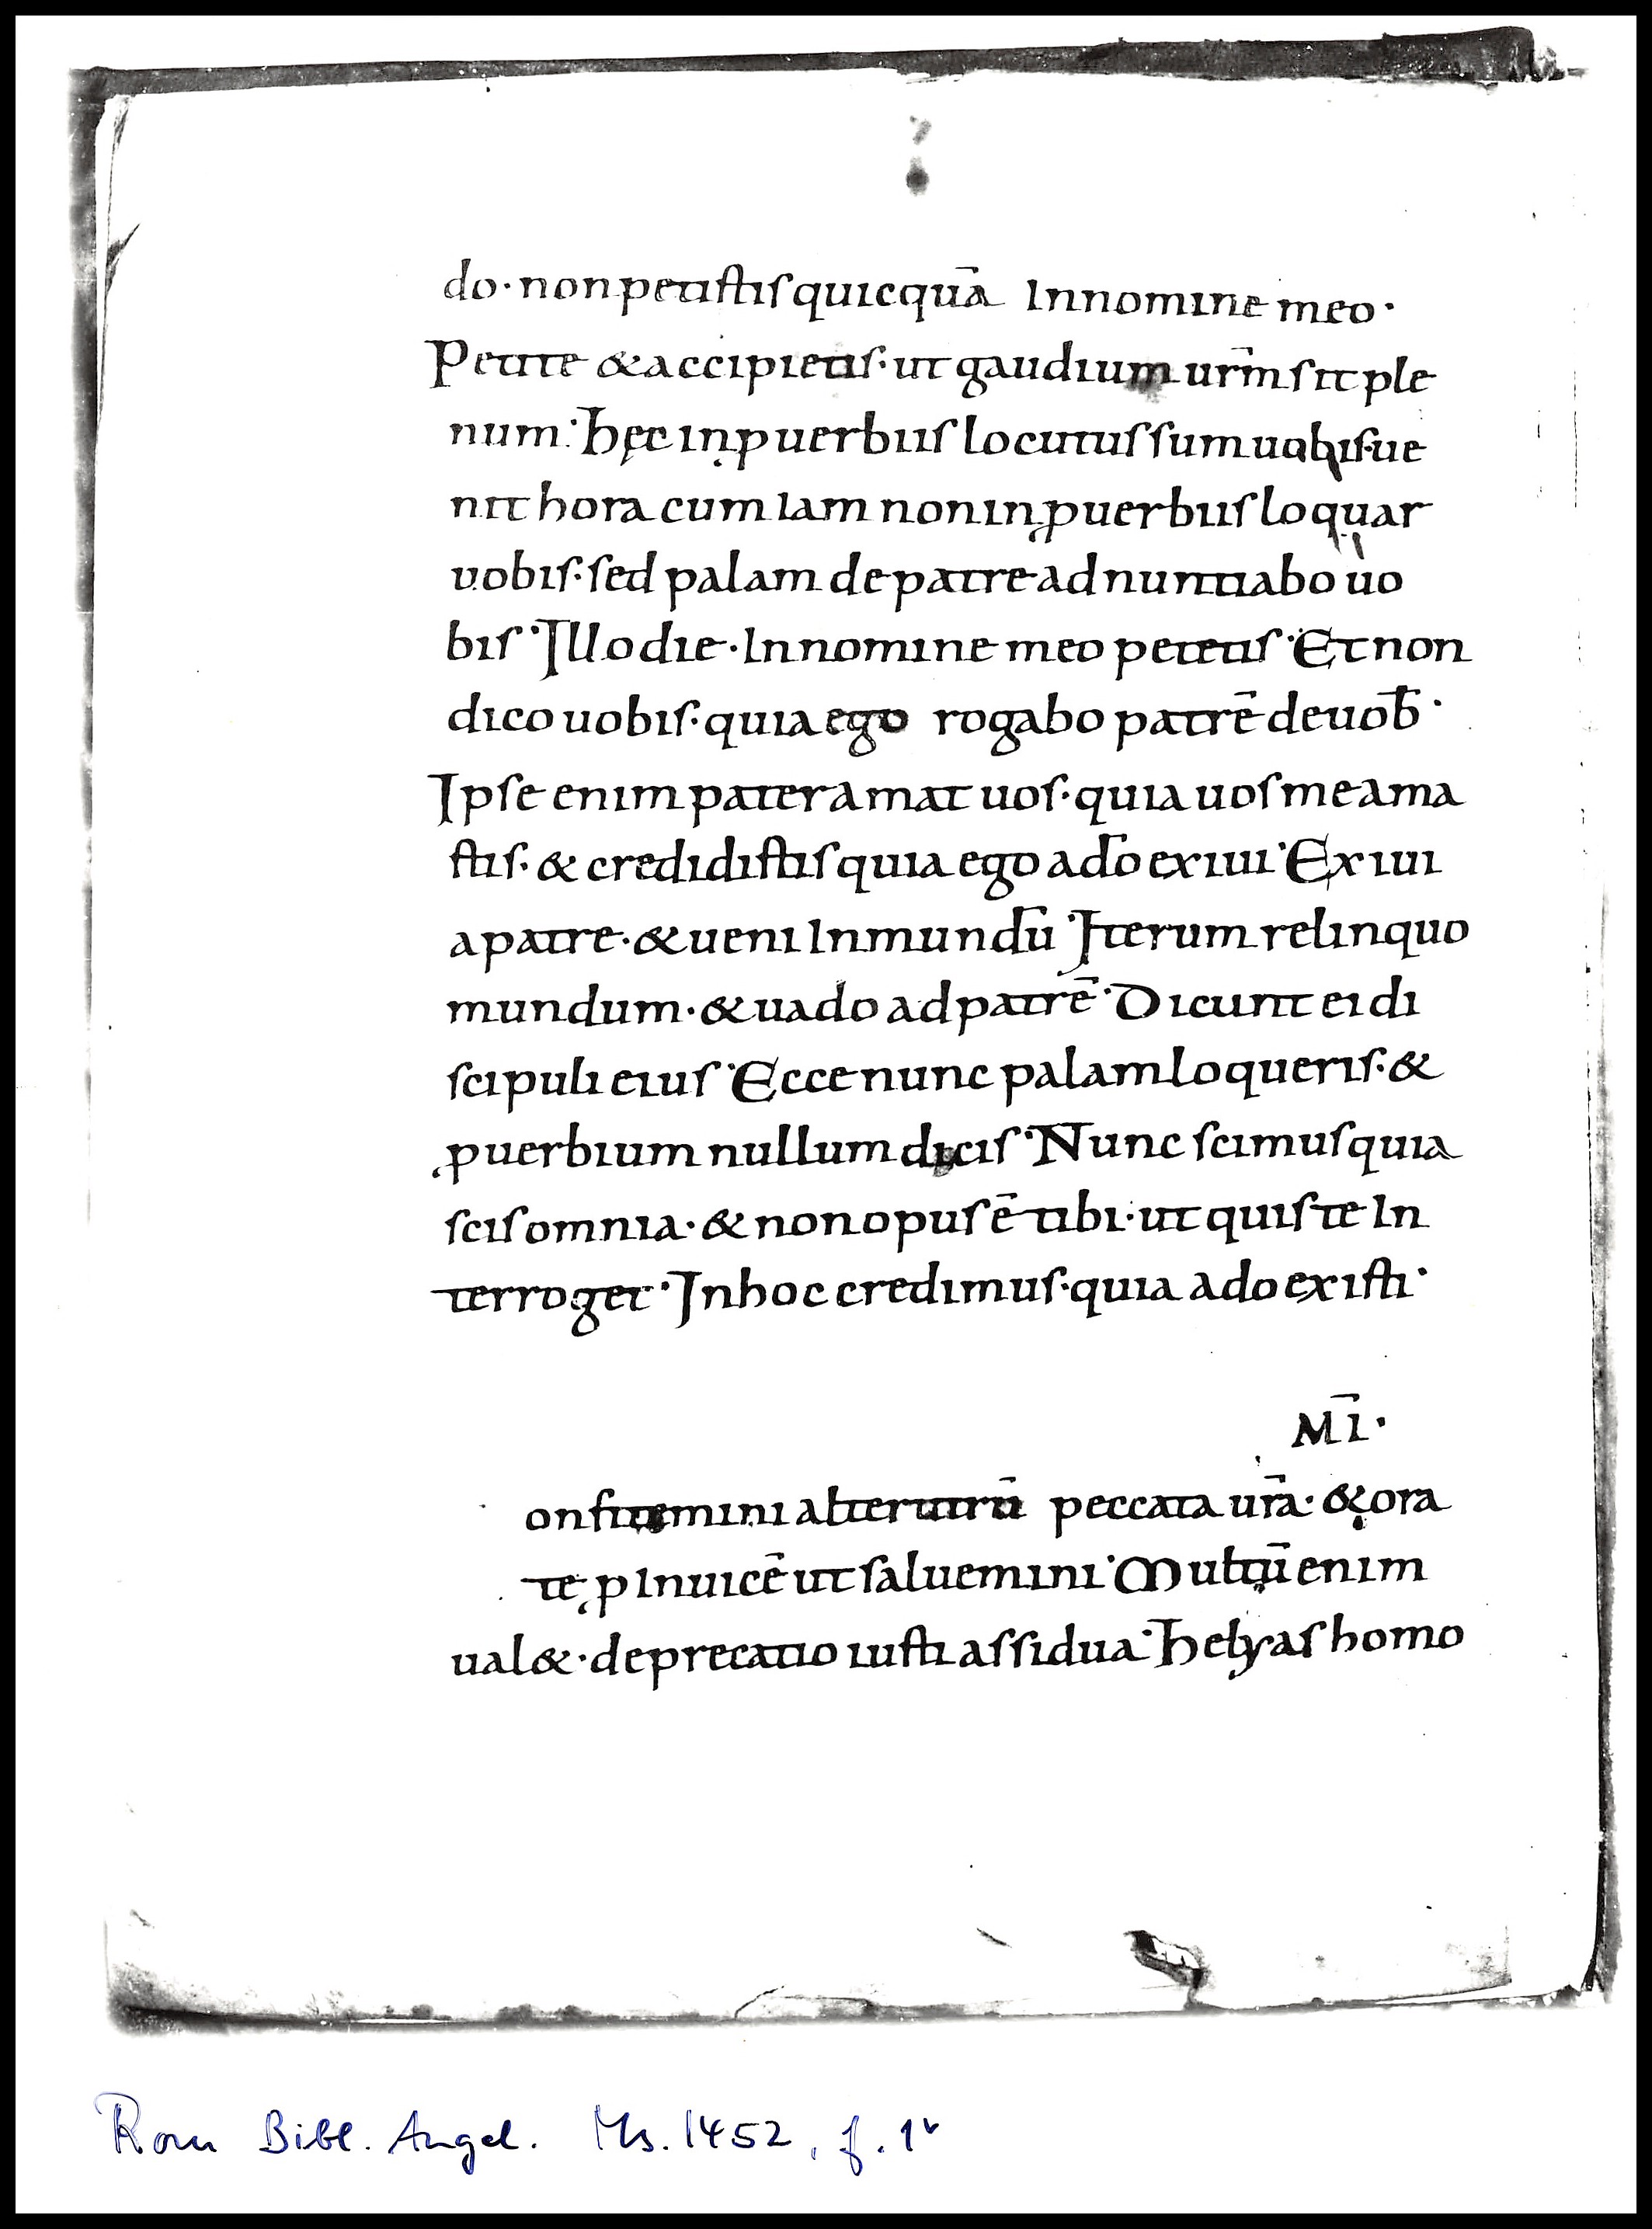 do· non petistis quicquā In nomine meo·
Petite & accipietis· ut gaudium ur̄m sit ple
num· Hęc in ꝓuerbiis locutus sum uobis· ue
nit hora cum iam non in ꝓuerbiis loquar
uobis· sed palam de patre adnuntiabo uo
bis· Illo die· In nomine meo petetis· Et non
dico uobis· quia ego rogabo patrē de uob̄·
Ipse enim pater amat uos· quia uos me ama
stis· & credidistis quia ego a dō exiui· Exiui
a patre· & ueni In mundū· Iterum relinquo
mundum· & uado ad patrē· Dicunt ei di
scipuli eius· Ecce nunc palam loqueris· &
ꝓuerbium nullum dicis· Nunc scimus quia
scis omnia· & non opus ē tibi· ut quis te In
terroget· In hoc credimus· quia a do existi·
M̄I·
onfitemini alterutrū peccata ur̄a· & ora
te ꝓ Inuicē ut saluemini· Multū enim
ual&· deprecatio iusti assidua· Helyas homo
Rom Bibl. Angel. Ms. 1452, f. 1v